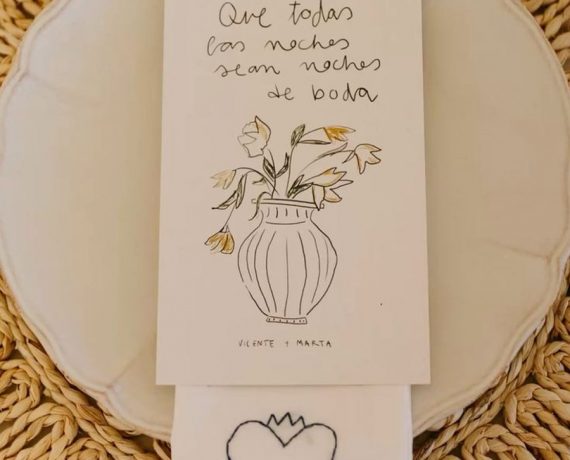 Que todas
las noches
sean noches
de boda
VICENTE Y MARTA